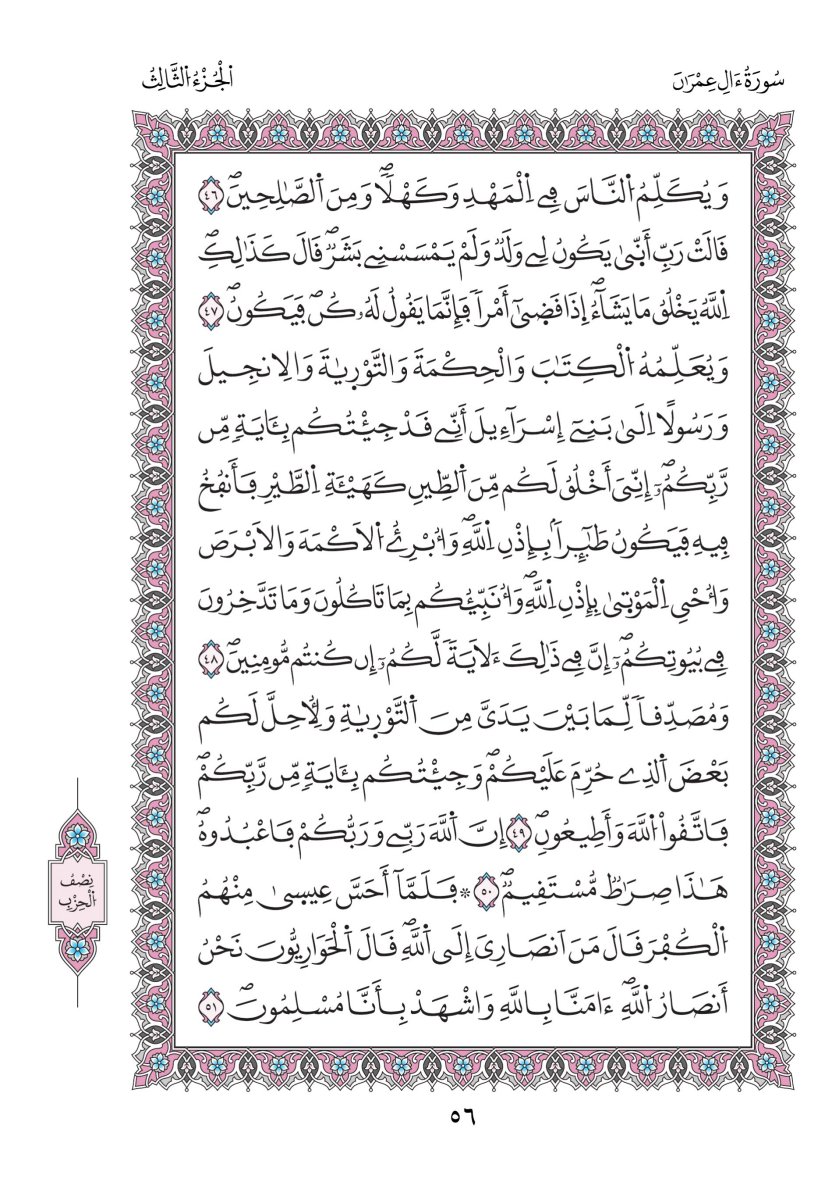 سُورَةُ ءَالِ عِمْرَٰنَ
اَلْجُزْءُ اُلثَّالِثُ
وَيُكَلِّمُ اُلنَّاسَ فِے اِلْمَهْدِ وَكَهْلاٗۖ وَمِنَ اَلصَّٰلِحِينَۖ ٤٦
قَالَتْ رَبِّ أَنّ۪يٰ يَكُونُ لِے وَلَدٞ وَلَمْ يَمْسَسْنِے بَشَرٞۖ قَالَ كَذَٰلِكِۖ
اِ۬للَّهُ يَخْلُقُ مَا يَشَآءُۖ إِذَا قَض۪يٰٓ أَمْراٗ فَإِنَّمَا يَقُولُ لَهُۥ كُنۖ فَيَكُونُۖ ٤٧
وَيُعَلِّمُهُ اُلْكِتَٰبَ وَالْحِكْمَةَ وَالتَّوْر۪يٰةَ وَالِانجِيلَ
وَرَسُولًا اِلَيٰ بَنِےٓ إِسْرَآءِيلَ أَنِّے قَدْ جِئْتُكُم بِـَٔايَةٖ مِّن
رَّبِّكُمُۥٓۖ إِنِّيَ أَخْلُقُ لَكُم مِّنَ اَلطِّينِ كَهَيْـَٔةِ اِلطَّيْرِ فَأَنفُخُ
فِيهِ فَيَكُونُ طَٰٓئِراَۢ بِإِذْنِ اِللَّهِۖ وَأُبْرِۓُ اُلَاكْمَهَ وَالَابْرَصَ
وَأُحْيِ اِلْمَوْت۪يٰ بِإِذْنِ اِللَّهِۖ وَأُنَبِّئُكُم بِمَا تَاكُلُونَ وَمَا تَدَّخِرُونَ
فِے بُيُوتِكُمُۥٓۖ إِنَّ فِے ذَٰلِكَ ءَلَايَةٗ لَّكُمُۥٓ إِن كُنتُم مُّومِنِينَۖ ٤٨
وَمُصَدِّقاٗ لِّمَا بَيْنَ يَدَيَّ مِنَ اَلتَّوْر۪يٰةِ وَلِأُحِلَّ لَكُم
بَعْضَ اَلذِے حُرِّمَ عَلَيْكُمْۖ وَجِئْتُكُم بِـَٔايَةٖ مِّن رَّبِّكُمْۖ
فَاتَّقُواْ اُللَّهَ وَأَطِيعُونِۖ ٤٩ إِنَّ اَللَّهَ رَبِّے وَرَبُّكُمْ فَاعْبُدُوهُۖ
هَٰذَا صِرَٰطٞ مُّسْتَقِيمٞۖ ٥٠ ۞ فَلَمَّآ أَحَسَّ عِيس۪يٰ مِنْهُمُ
اُلْكُفْرَ قَالَ مَنَ اَنصَارِيَ إِلَى اَللَّهِۖ قَالَ اَلْحَوَارِيُّونَ نَحْنُ
أَنصَارُ اُللَّهِۖ ءَامَنَّا بِاللَّهِ وَاشْهَدْ بِأَنَّا مُسْلِمُونَۖ ٥١
نِصْفُ
اُلْحِزْبِ
٥٦